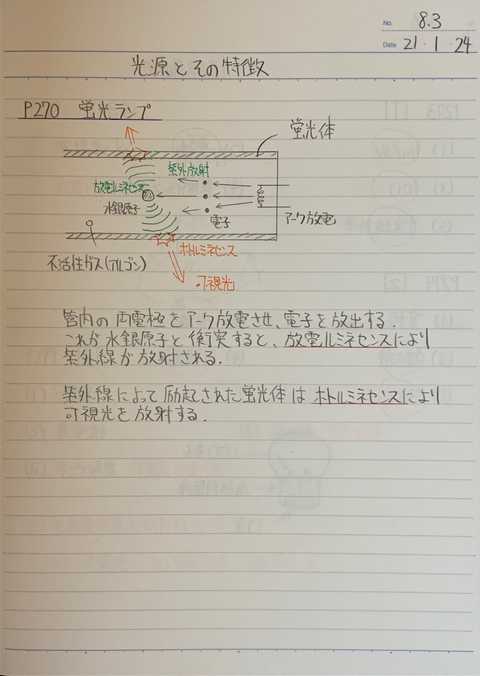 No. 8.3
Date 21・1・24
光源とその特徴
P270 蛍光ランプ
蛍光体
紫外放射
放電ルミネセンス
水銀原子
電子
アーク放電
ホトルミネセンス
不活性ガス(アルゴン)
可視光
管内の両電極をアーク放電させ、電子を放出する.
これが水銀原子と衝突すると、放電ルミネセンスにより
紫外線が放射される.
紫外線によって励起された蛍光体はホトルミネセンスにより
可視光を放射する.